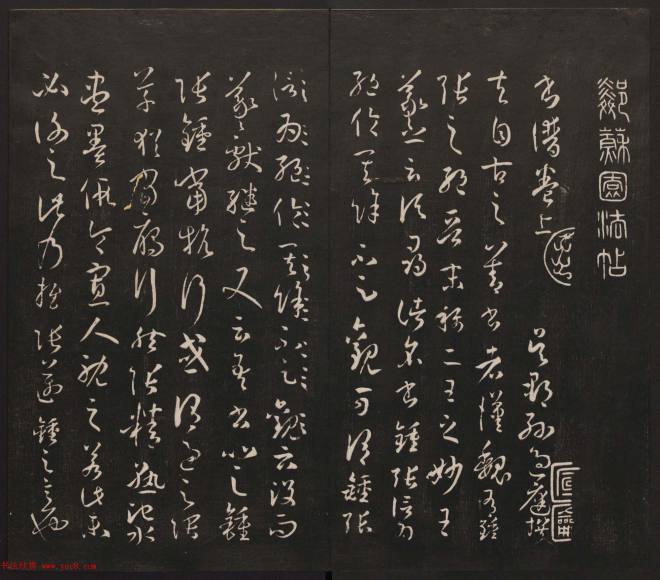 鄰蘇園法帖
書譜卷上 吳郡孫過庭撰
夫自古之善書者漢魏有鍾
張之絕晉末稱二王之妙王
羲之云頃尋諸名書鍾張信為
絕倫其餘不足觀可謂鍾張
信為絕倫其餘不足觀云沒而
羲獻繼之又云吾書比之鍾
張鍾當抗行或謂過之張
草猶當雁行然張精熟池水
盡墨假令寡人耽之若此未
必謝之此乃推張邁鍾之意也
书法欣赏 www.yac8.com